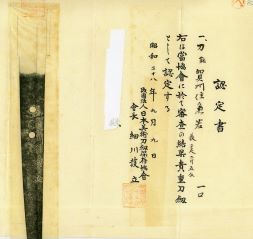 認定書
一、刀 銘 賀州住兼若 一口
長さ二尺
右は當協會に於て審査の結果貴重刀剣
として認定する
昭和二十八年九月九日
財團法人日本美術刀剣保存協會
會長 細川護立